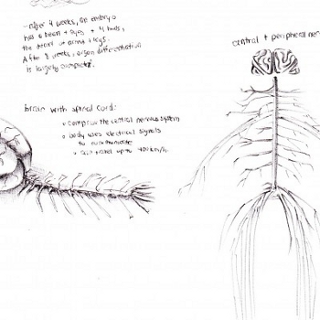 - after 4 weeks, an embryo
has a heart + eyes +
the start of arms + legs.
After 8 weeks, organ differentiation
is largely completed.
central + peripheral ner
Brain with spinal cord:
the central nervous system
body uses electrical signals
to
travel up to 400 km/h